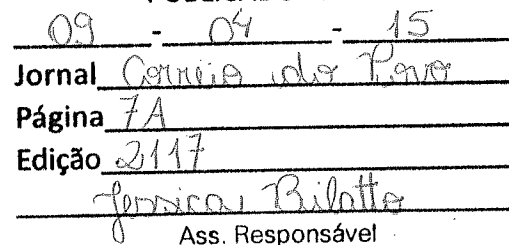 09 - 04 - 15
Jornal Correio do Povo
Página 7A
Edição 2117
Jessica Bilatto
Ass. Responsável